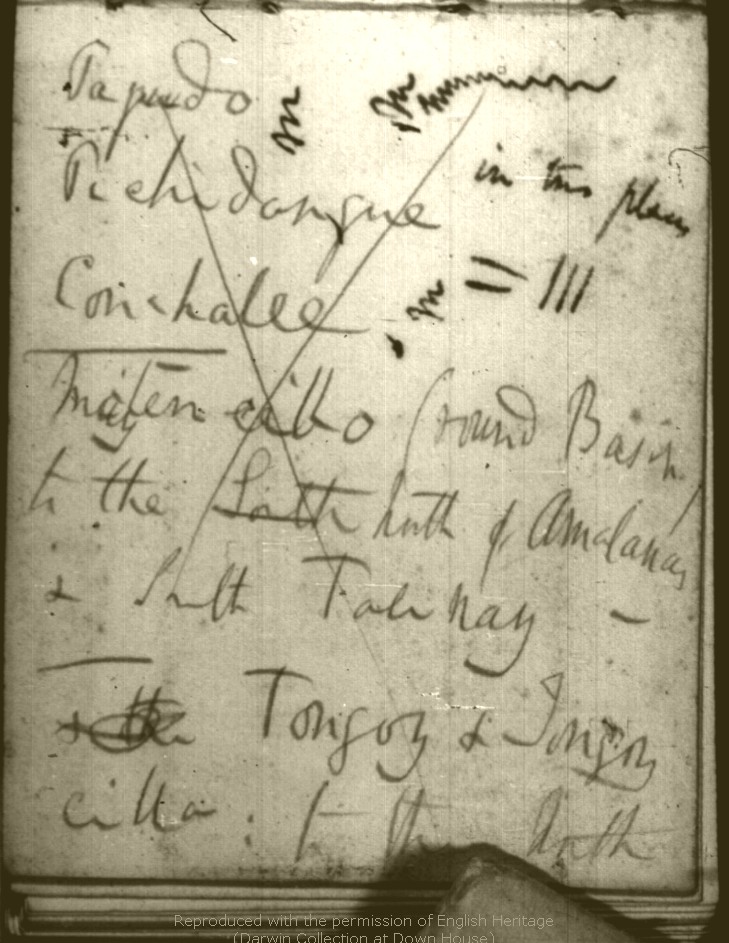 Papudo
Pichidanque
in this place
Conchalee
= III
cillo (round Basin
to the South North of Amalanas
& South Talinay —
Tongoy & Tongoy
cilla: to the North
Reproduced with the permission of English Heritage
(Darwin Collection at Down House)